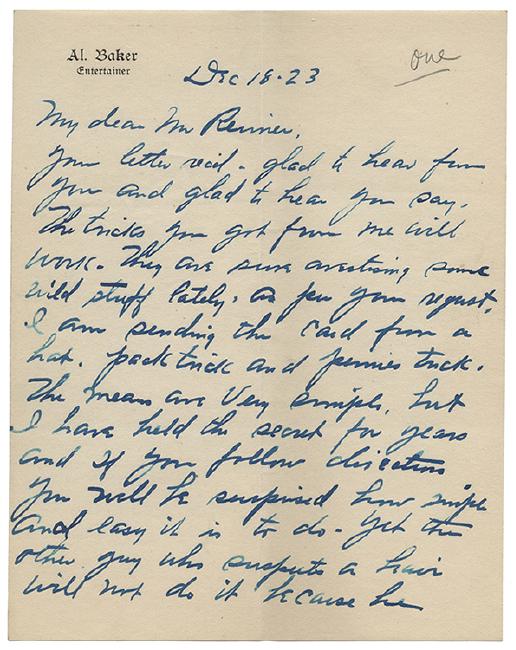 Al. Baker
Entertainer
one
Dec 18-23
My dear Mr Renner,
Your letter recd - glad to hear from
you and glad to hear you say.
The tricks you got from me will
work. They are sure avertising some
wild stuff lately. as per your request.
I am sending the card from a
hat. pack trick and pennies trick.
The means are very simple, but
I have held the secret for years
and if you follow direction
you will be surprised how simple
and easy it is to do - yet the
other guy who suspects a hair
will not do it because he